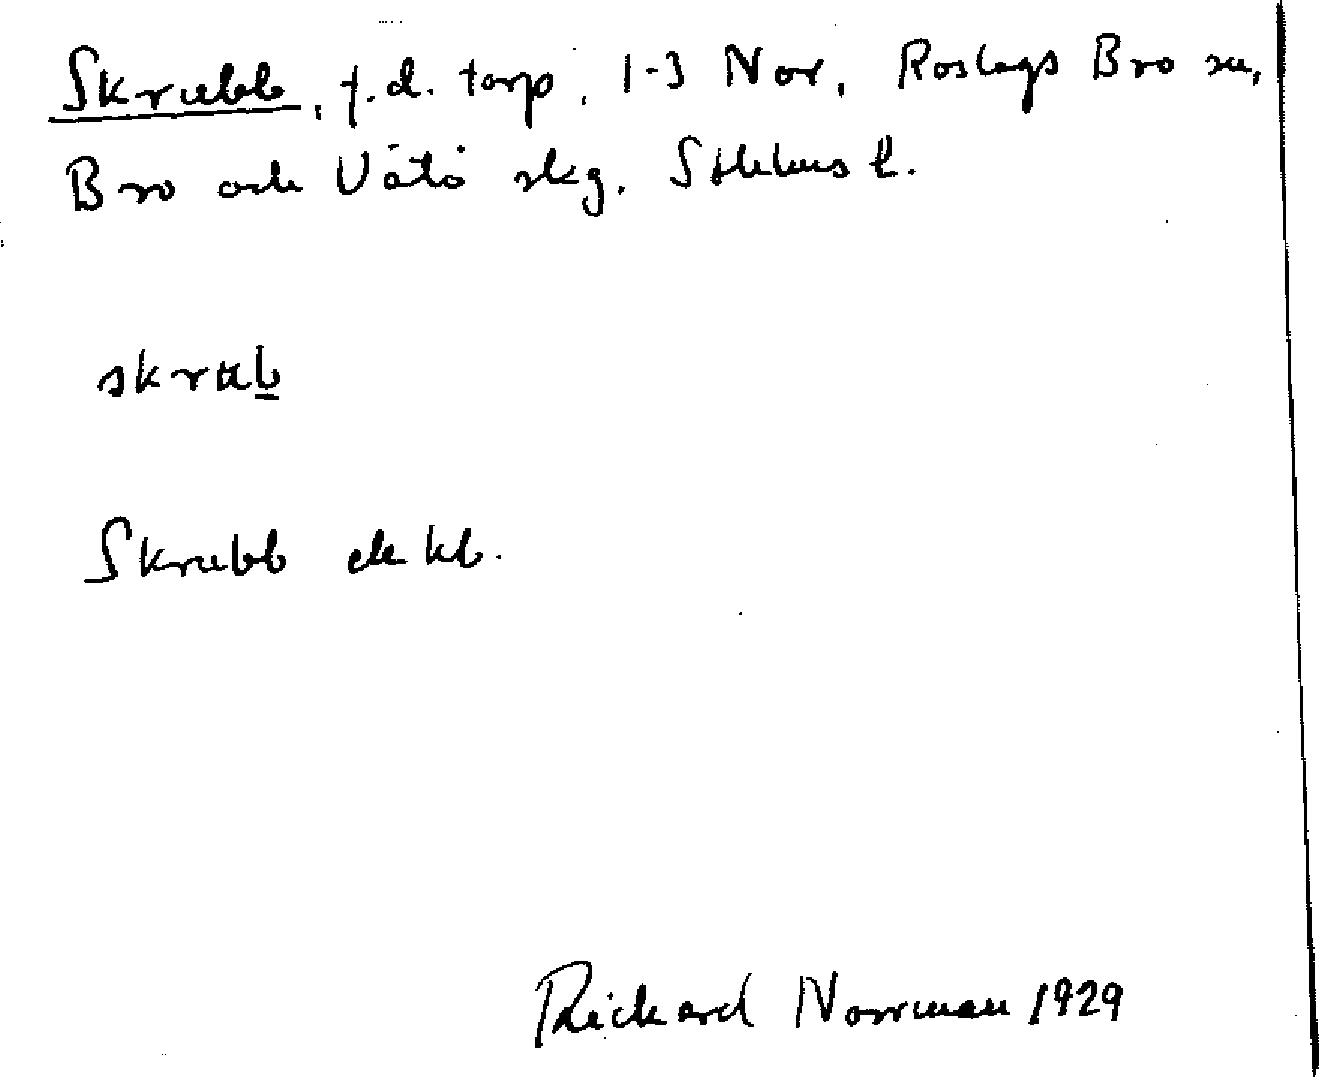 Skrubb, f.d. torp, 1-3 Nor, Roslags Bro sn,
Bro och Vätö skg. Sthlms l.
skrub̲
Skrubb ek kb.
Rickard Norrman 1929